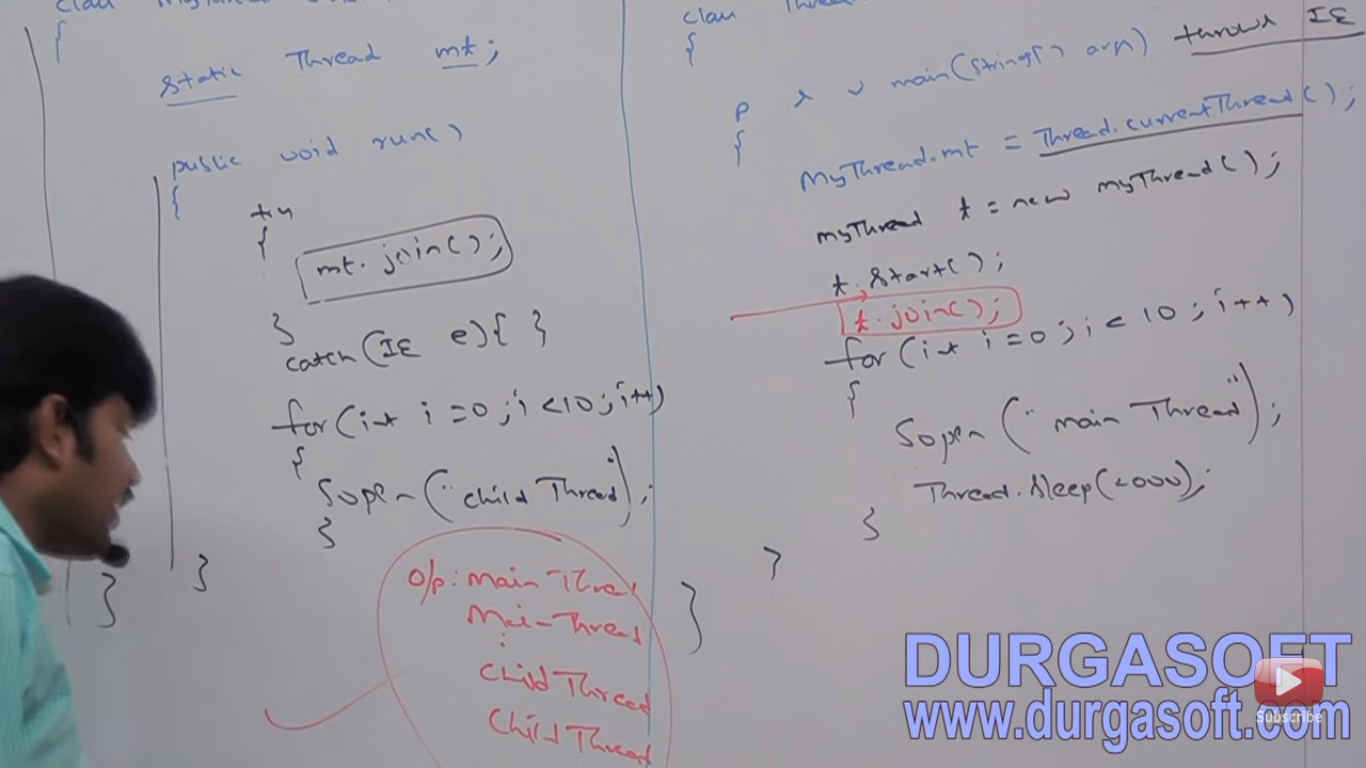 static Thread mt;
public void run()
{
try
{
mt.join();
}
catch(IE e){ }
for(int i=0;i<10;i++)
{
Sopln("child Thread");
}
}
}
O/p: Main Thread
Main Thread
:
Child Thread
Child Thread
class
{
p s v main(String[] args) throws IE
{
MyThread.mt = Thread.currentThread();
MyThread t = new MyThread();
t.start();
t.join();
for(int i=0;i<10;i++)
{
Sopln("main Thread");
Thread.sleep(2000);
}
}
}
DURGASOFT
www.durgasoft.com
Subscribe